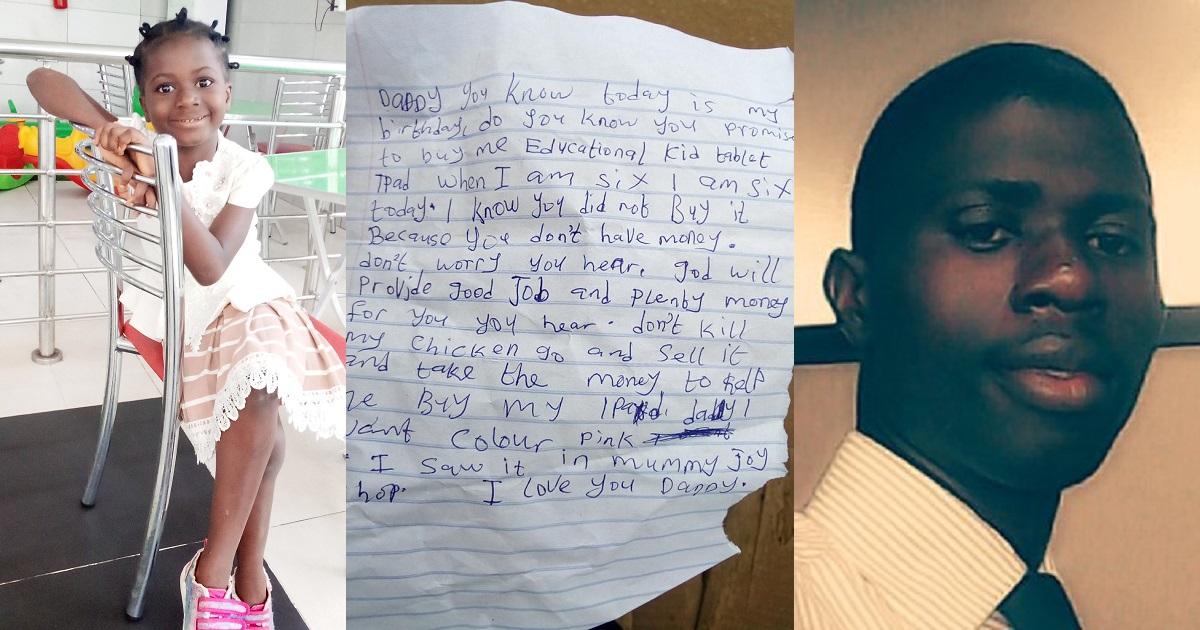 DADDY you know today is my
birthday, do you know you promise
to buy me Educational Kid tablet
IPad when I am six I am six
today. I know you did not Buy it
Because you don't have money.
don't worry you hear, god will
provide good Job and plenty money
for you you hear. don't kill
my chicken go and sell it
and take the money to help
me Buy my IPad. daddy I
want colour pink
I saw it in mummy Joy
hop. I Love you DADDY.